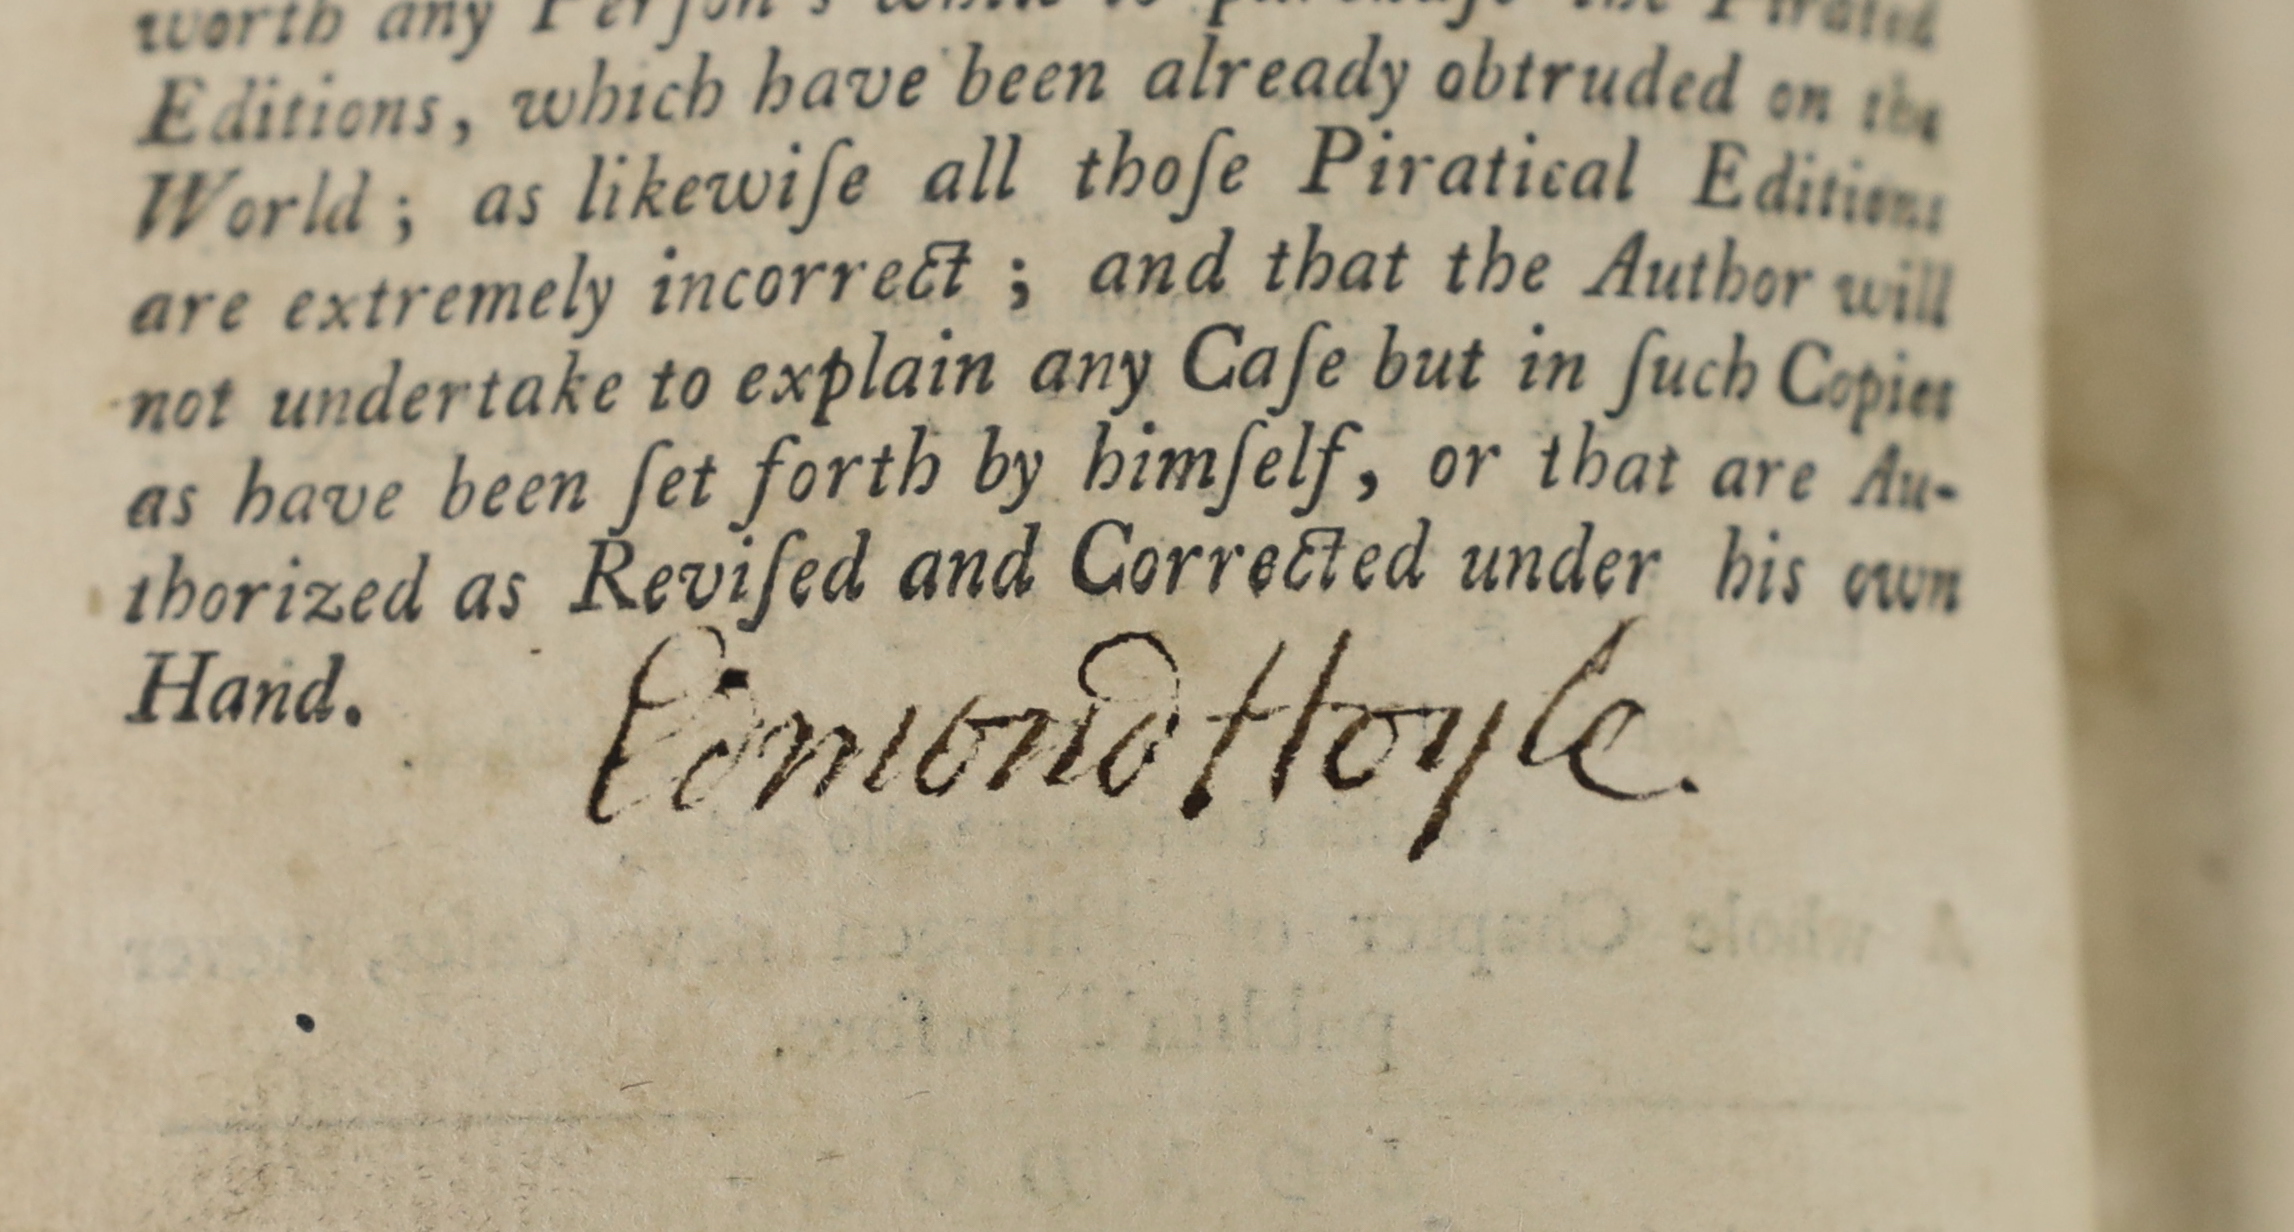 worth any Perſon's while to purchaſe the Pirated
Editions, which have been already obtruded on the
World; as likewiſe all thoſe Piratical Editions
are extremely incorrect; and that the Author will
not undertake to explain any Caſe but in ſuch Copies
as have been ſet forth by himſelf, or that are Au-
thorized as Reviſed and Corrected under his own
Hand.
Edmond Hoyle.
A whole Chapter of new Caſes, never
publiſh'd before.